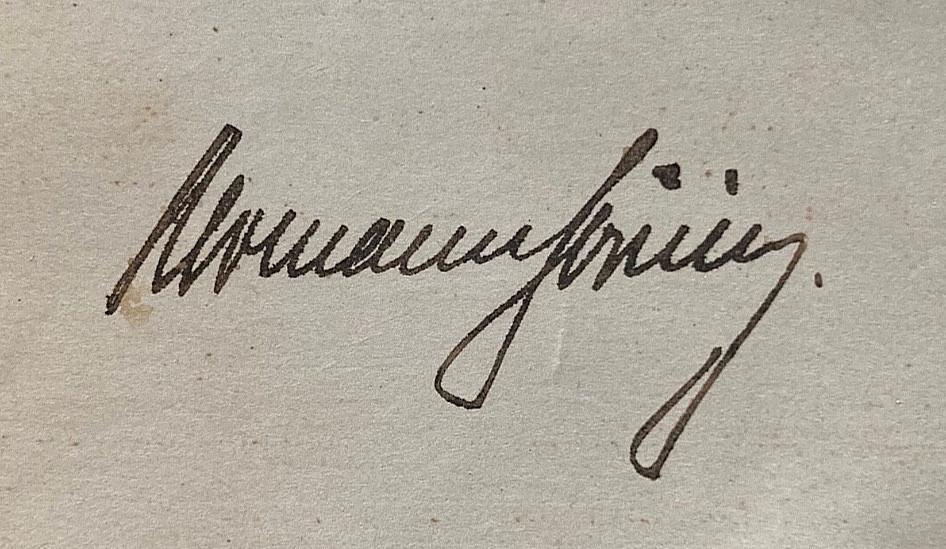 Hermann Göring.